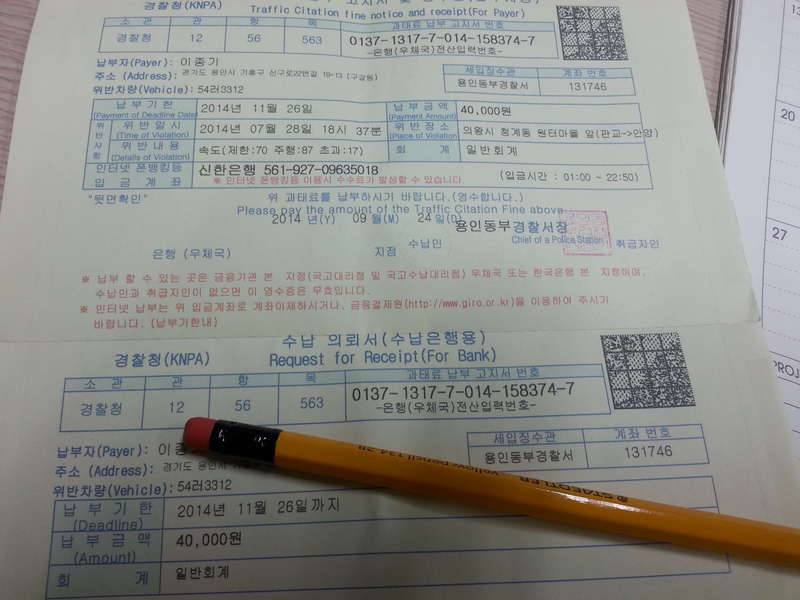 Traffic Citation fine notice and receipt(For Payer)
경찰청(KNPA)
소 관 항 목 과태료 납부 고지서 번호
경찰청 12 56 563 0137-1317-7-014-158374-7
-은행(우체국)전산입력번호-
납부자(Payer): 이종기
주소 (Address): 경기도 용인시 기흥구 신구로22번길 19-13 (구갈동)
위반차량(Vehicle): 54러3312
세입징수관 계좌 번호
용인동부경찰서 131746
납 부 기 한 (Payment of Deadline Date) 2014년 11월 26일 납 부 금 액 (Payment Amount) 40,000원
위반사항 위 반 일 시 (Time of Violation) 2014년 07월 28일 18시 37분 위 반 장 소 (Place of Violation) 의왕시 청계동 원터마을 앞(판교->안양)
위 반 내 용 (Details of Violation) 속도(제한:70 주행:87 초과:17) 회 계 일반회계
인터넷 폰뱅킹등 입 금 계 좌 신한은행 561-927-09635018
※ 인터넷 폰뱅킹등 이용시 수수료가 발생할 수 있습니다. (입금시간 : 01:00 ~ 22:50)
"뒷면확인" 위 과태료를 납부하시기 바랍니다.(영수합니다.)
Please pay the amount of the Traffic Citation Fine above
2014 년(Y) 09 월(M) 24 일(D)
용인동부경찰서장
Chief of a Police Station
수납인 취급자인
은행 (우체국) 지점
※ 납부 할 수 있는 곳은 금융기관 본 지점(국고대리점 및 국고수납대리점) 우체국 또는 한국은행 본 지점이며,
수납인과 취급자인이 없으면 이 영수증은 무효입니다.
※ 인터넷 납부는 위 입금계좌로 계좌이체하시거나, 금융결제원(http://www.giro.or.kr)을 이용하여 주시기
바랍니다. (납부기한내)
수납 의뢰서(수납은행용)
경찰청(KNPA) Request for Receipt(For Bank)
소 관 항 목 과태료 납부 고지서 번호
경찰청 12 56 563 0137-1317-7-014-158374-7
-은행(우체국)전산입력번호-
납부자(Payer): 이종
주소 (Address): 경기도 용인시
위반차량(Vehicle): 54러3312
세입징수관 계좌 번호
용인동부경찰서 131746
납 부 기 한 (Deadline) 2014년 11월 26일까지
납 부 금 액 (Amount) 40,000원
회 계 일반회계
STAEDTLER
yellow pencil 134-2B
20
27
PROJ